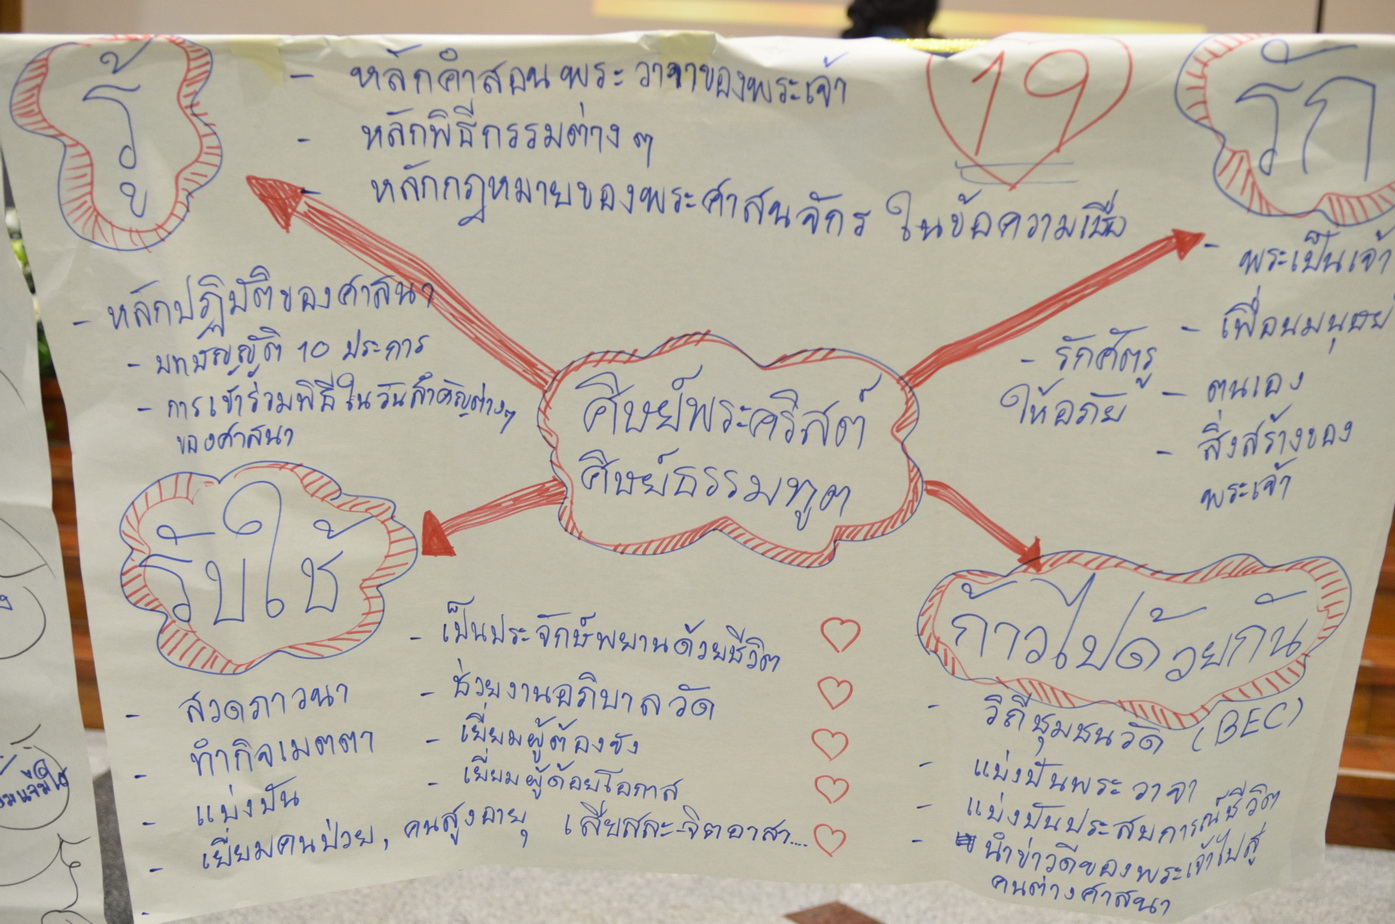 รู้
- หลักคำสอนพระวาจาของพระเจ้า
- หลักพิธีกรรมต่างๆ
- หลักกฎหมายของพระศาสนจักร ในข้อความเชื่อ
19
- หลักปฏิบัติของศาสนา
- บทบัญญัติ 10 ประการ
- การเข้าร่วมพิธีในวันสำคัญต่างๆ
ของศาสนา
รัก
- พระเป็นเจ้า
- เพื่อนมนุษย์
- ตนเอง
- สิ่งสร้างของ
พระเจ้า
- รักศัตรู
ให้อภัย
ศิษย์พระคริสต์
ศิษย์ธรรมทูต
รับใช้
- สวดภาวนา
- ทำกิจเมตตา
- แบ่งปัน
- เยี่ยมคนป่วย, คนสูงอายุ เสียสละ-จิตอาสา....
-
- เป็นประจักษ์พยานด้วยชีวิต
- ช่วยงานอภิบาลวัด
- เยี่ยมผู้ต้องขัง
- เยี่ยมผู้ด้อยโอกาส
ก้าวไปด้วยกัน
- วิถีชุมชนวัด (BEC)
- แบ่งปันพระวาจา
- แบ่งปันประสบการณ์ชีวิต
- นำข่าวดีของพระเจ้าไปสู่
คนต่างศาสนา